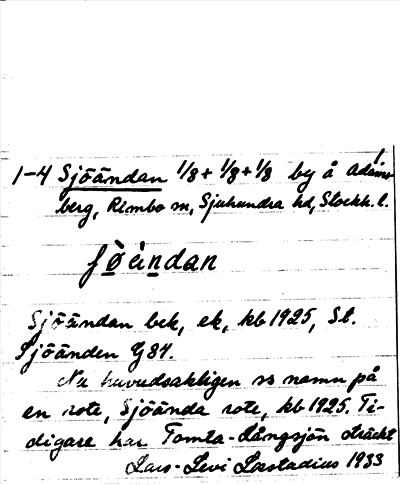 1.
1-4 Sjöändan 1/8+ 1/8+1/8 by å Adams
berg, Rimbo sn, Sjuhundra hd, Stockh. l.
Sjöändan bek, ek, kb 1925, St.
Sjöänden G84.
Nu huvudsakligen ss namn på
en rote, Sjöända rote, kb 1925. Ti-
digare har Tomta-Långsjön sträckt
Lars-Levi Læstadius 1933